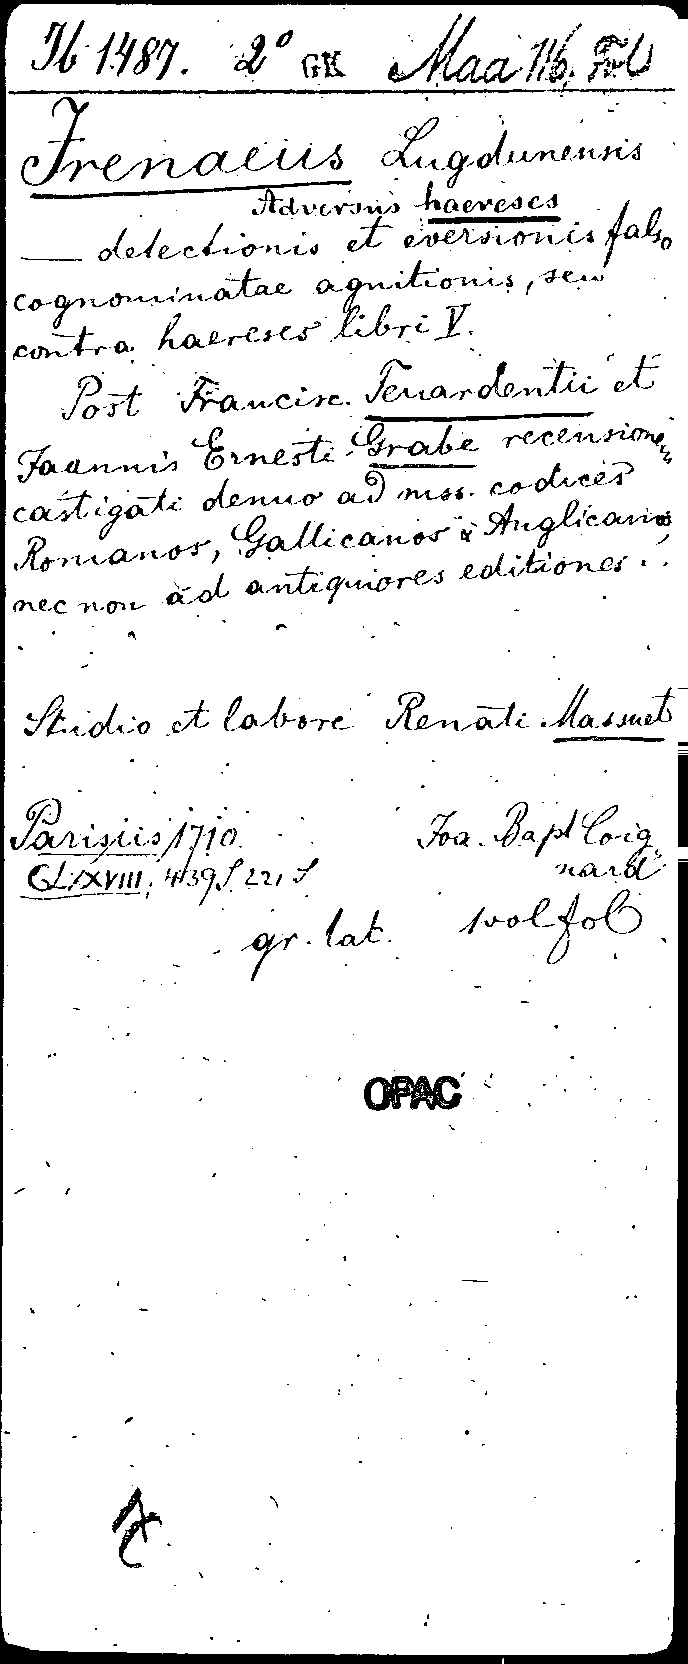 Ib 1487. 2° GK Maa 116, Fol
Irenaeus Lugdunensis
Adversus haereses
— detectionis et eversionis falso
cognominatae agnitionis, seu
contra haereses libri V.
Post Francisc. Feuardentii et
Joannis Ernesti Grabe recensionem
castigati denuo ad mss. codices
Romanos, Gallicanos & Anglicanos,
nec non ad antiquiores editiones...
Studio et labore Renati Massuet
Parisiis, 1710. Joa. Bapt Coig
CLXVIII, 4139 S. 221 S nard
gr. lat. 1 vol fol
OPAC